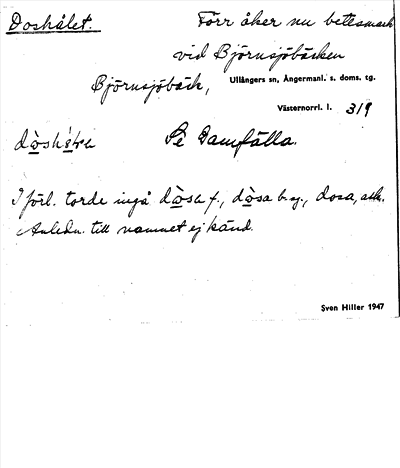 Doshålet. Förr åker nu betesmark
vid Björnsjöbäcken
Björnsjöbäck, Ullångers sn, Ångermanl. s. doms. tg.
Västernorrl. l. 319
Se Damfälla.
I förl. torde ingå dòsa f., dòsa b. y., dosa, ask.
Anledn. till namnet ej känd.
Sven Hiller 1947